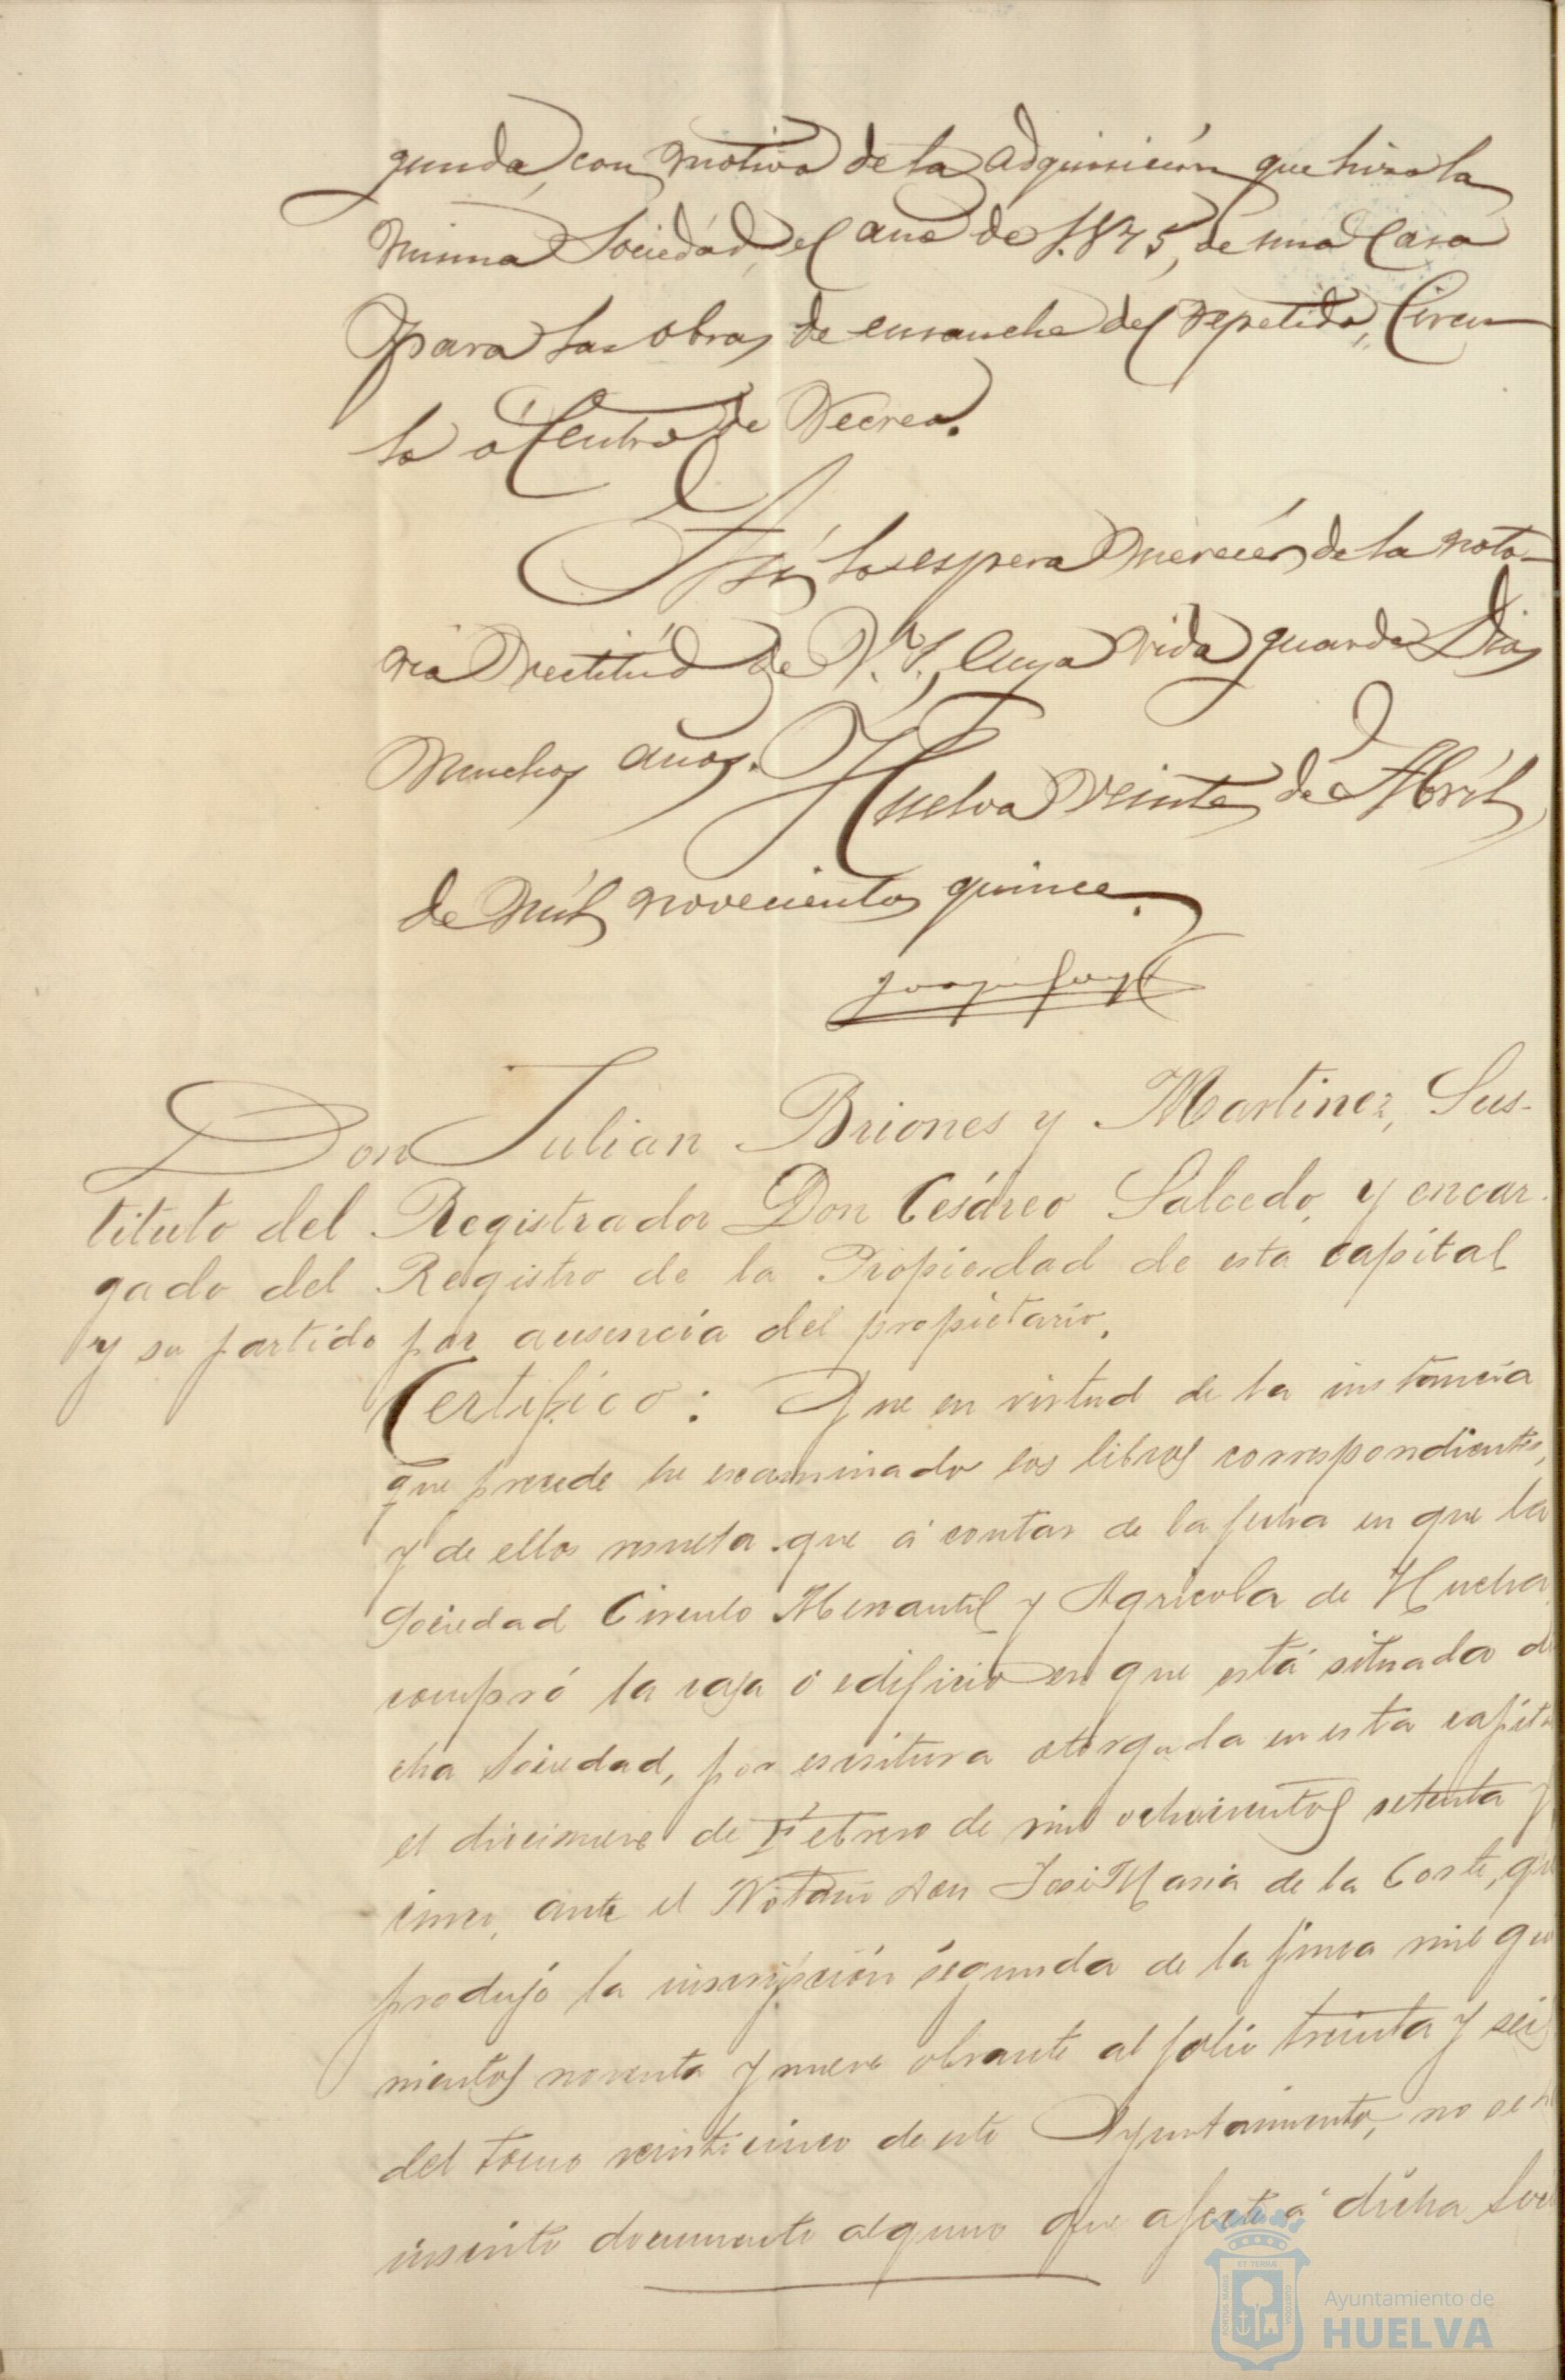 gunda, con motivo de la adquisición que hizo la
misma Sociedád, el año de 1.875, de una Casa
para las obras de ensanche del repetido, Circu-
lo ó Centro de Recreo.
Así lo espera merecér de la noto-
ria rectitúd de V. S., cuya vida guarde Dios
muchos años. Huelva veinte de Abríl
de míl novecientos quince.
Don Julian Briones y Martinez, Sus-
tituto del Registrador Don Cesáreo Salcedo, y encar-
gado del Registro de la Propiedad de esta capital
y su partido por ausencia del propietario.
Certifico: Que en virtud de la instancia
que precede he examinado los libros correspondientes,
y de ellos resulta que á contar de la fecha en que la
Sociedad Circulo Mercantil y Agricola de Huelva
compró la casa ó edificio en que está situada di
cha Sociedad, por escritura otorgada en esta capital
el diecinueve de Febrero de mil ochocientos setenta y
cinco, ante el Notario Don José Maria de la Corte, que
produjo la inscripción segunda de la finca mil qui
nientos noventa y nueve obrante al folio treinta y seis
del tomo veinticinco de este Ayuntamiento, no se h
inscrito documento alguno que afecte á dicha Soci
PORTUS MARIS
ET TERRAE
CUSTODIA
Ayuntamiento de
HUELVA